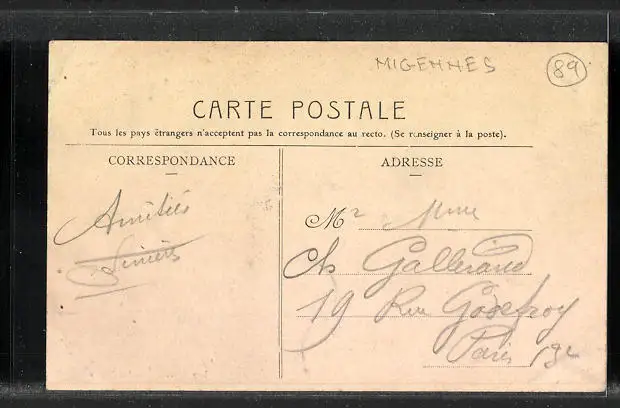 MIGENNES
89
CARTE POSTALE
Tous les pays étrangers n'acceptent pas la correspondance au recto. (Se renseigner à la poste).
CORRESPONDANCE
ADRESSE
Amitiés
Mr Mme
Ch Gallerand
19 Rue Godefroy
Paris 13e